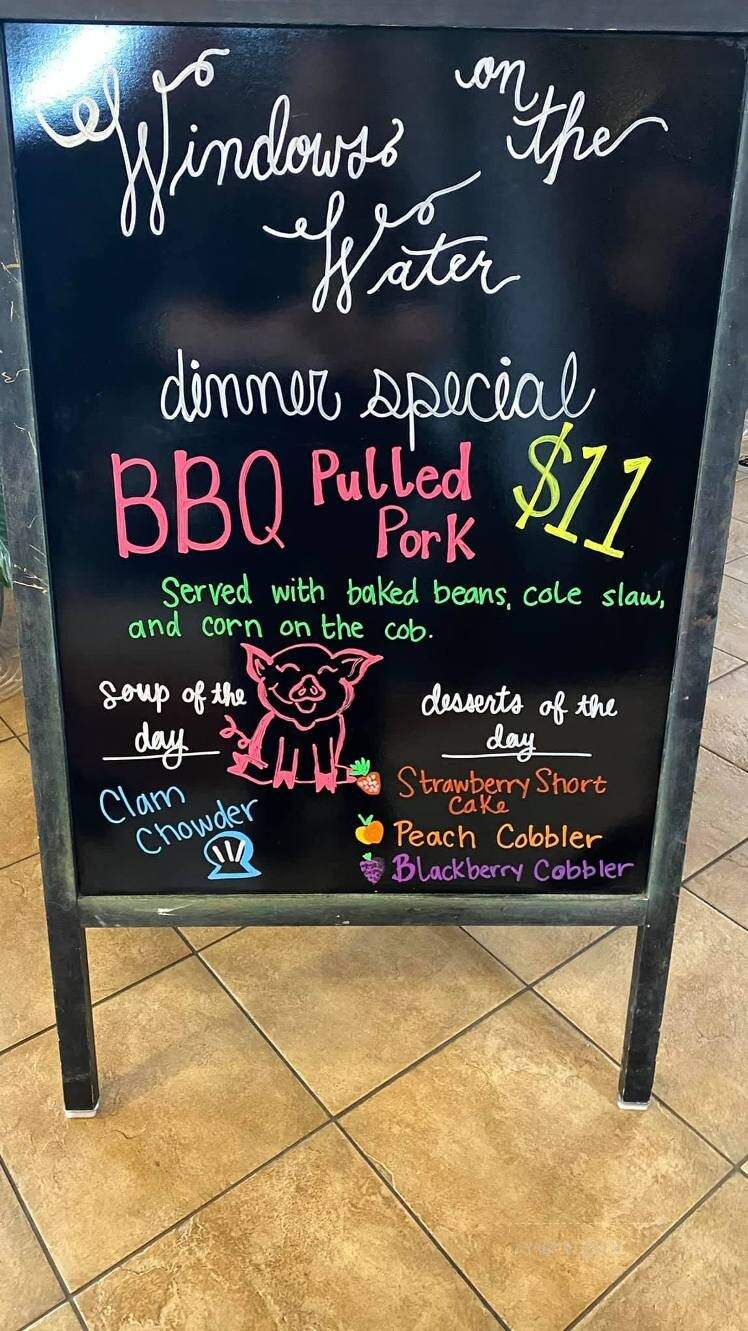 Windows on the
Water
dinner special
BBQ Pulled Pork $11
Served with baked beans, cole slaw,
and corn on the cob.
soup of the
day
Clam
Chowder
desserts of the
day
Strawberry Short
cake
Peach Cobbler
Blackberry Cobbler